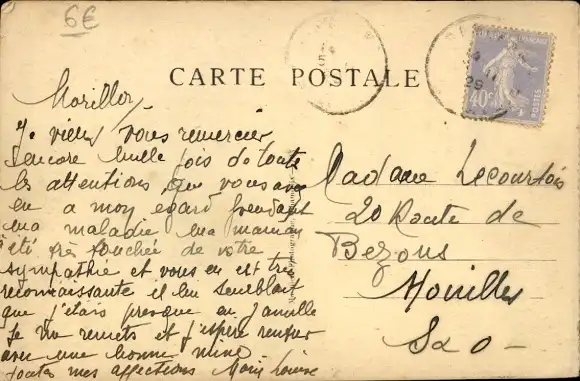 6€
CARTE POSTALE
40c
POSTES
29
Morillon
Je viens vous remercier
encore mille fois de toute
les attentions que vous avez
eu a mon egard pendant
ma maladie ma maman
été très touchée de votre
sympathie et vous en est très
reconnaissante il lui semblait
que j'étais presque en famille
Je me remets et j'espère rentrer
avec une bonne mine
toutes mes affections Marie Louise
Madame Lecourtois
20 Route de
Bezons
Houilles
S a O -